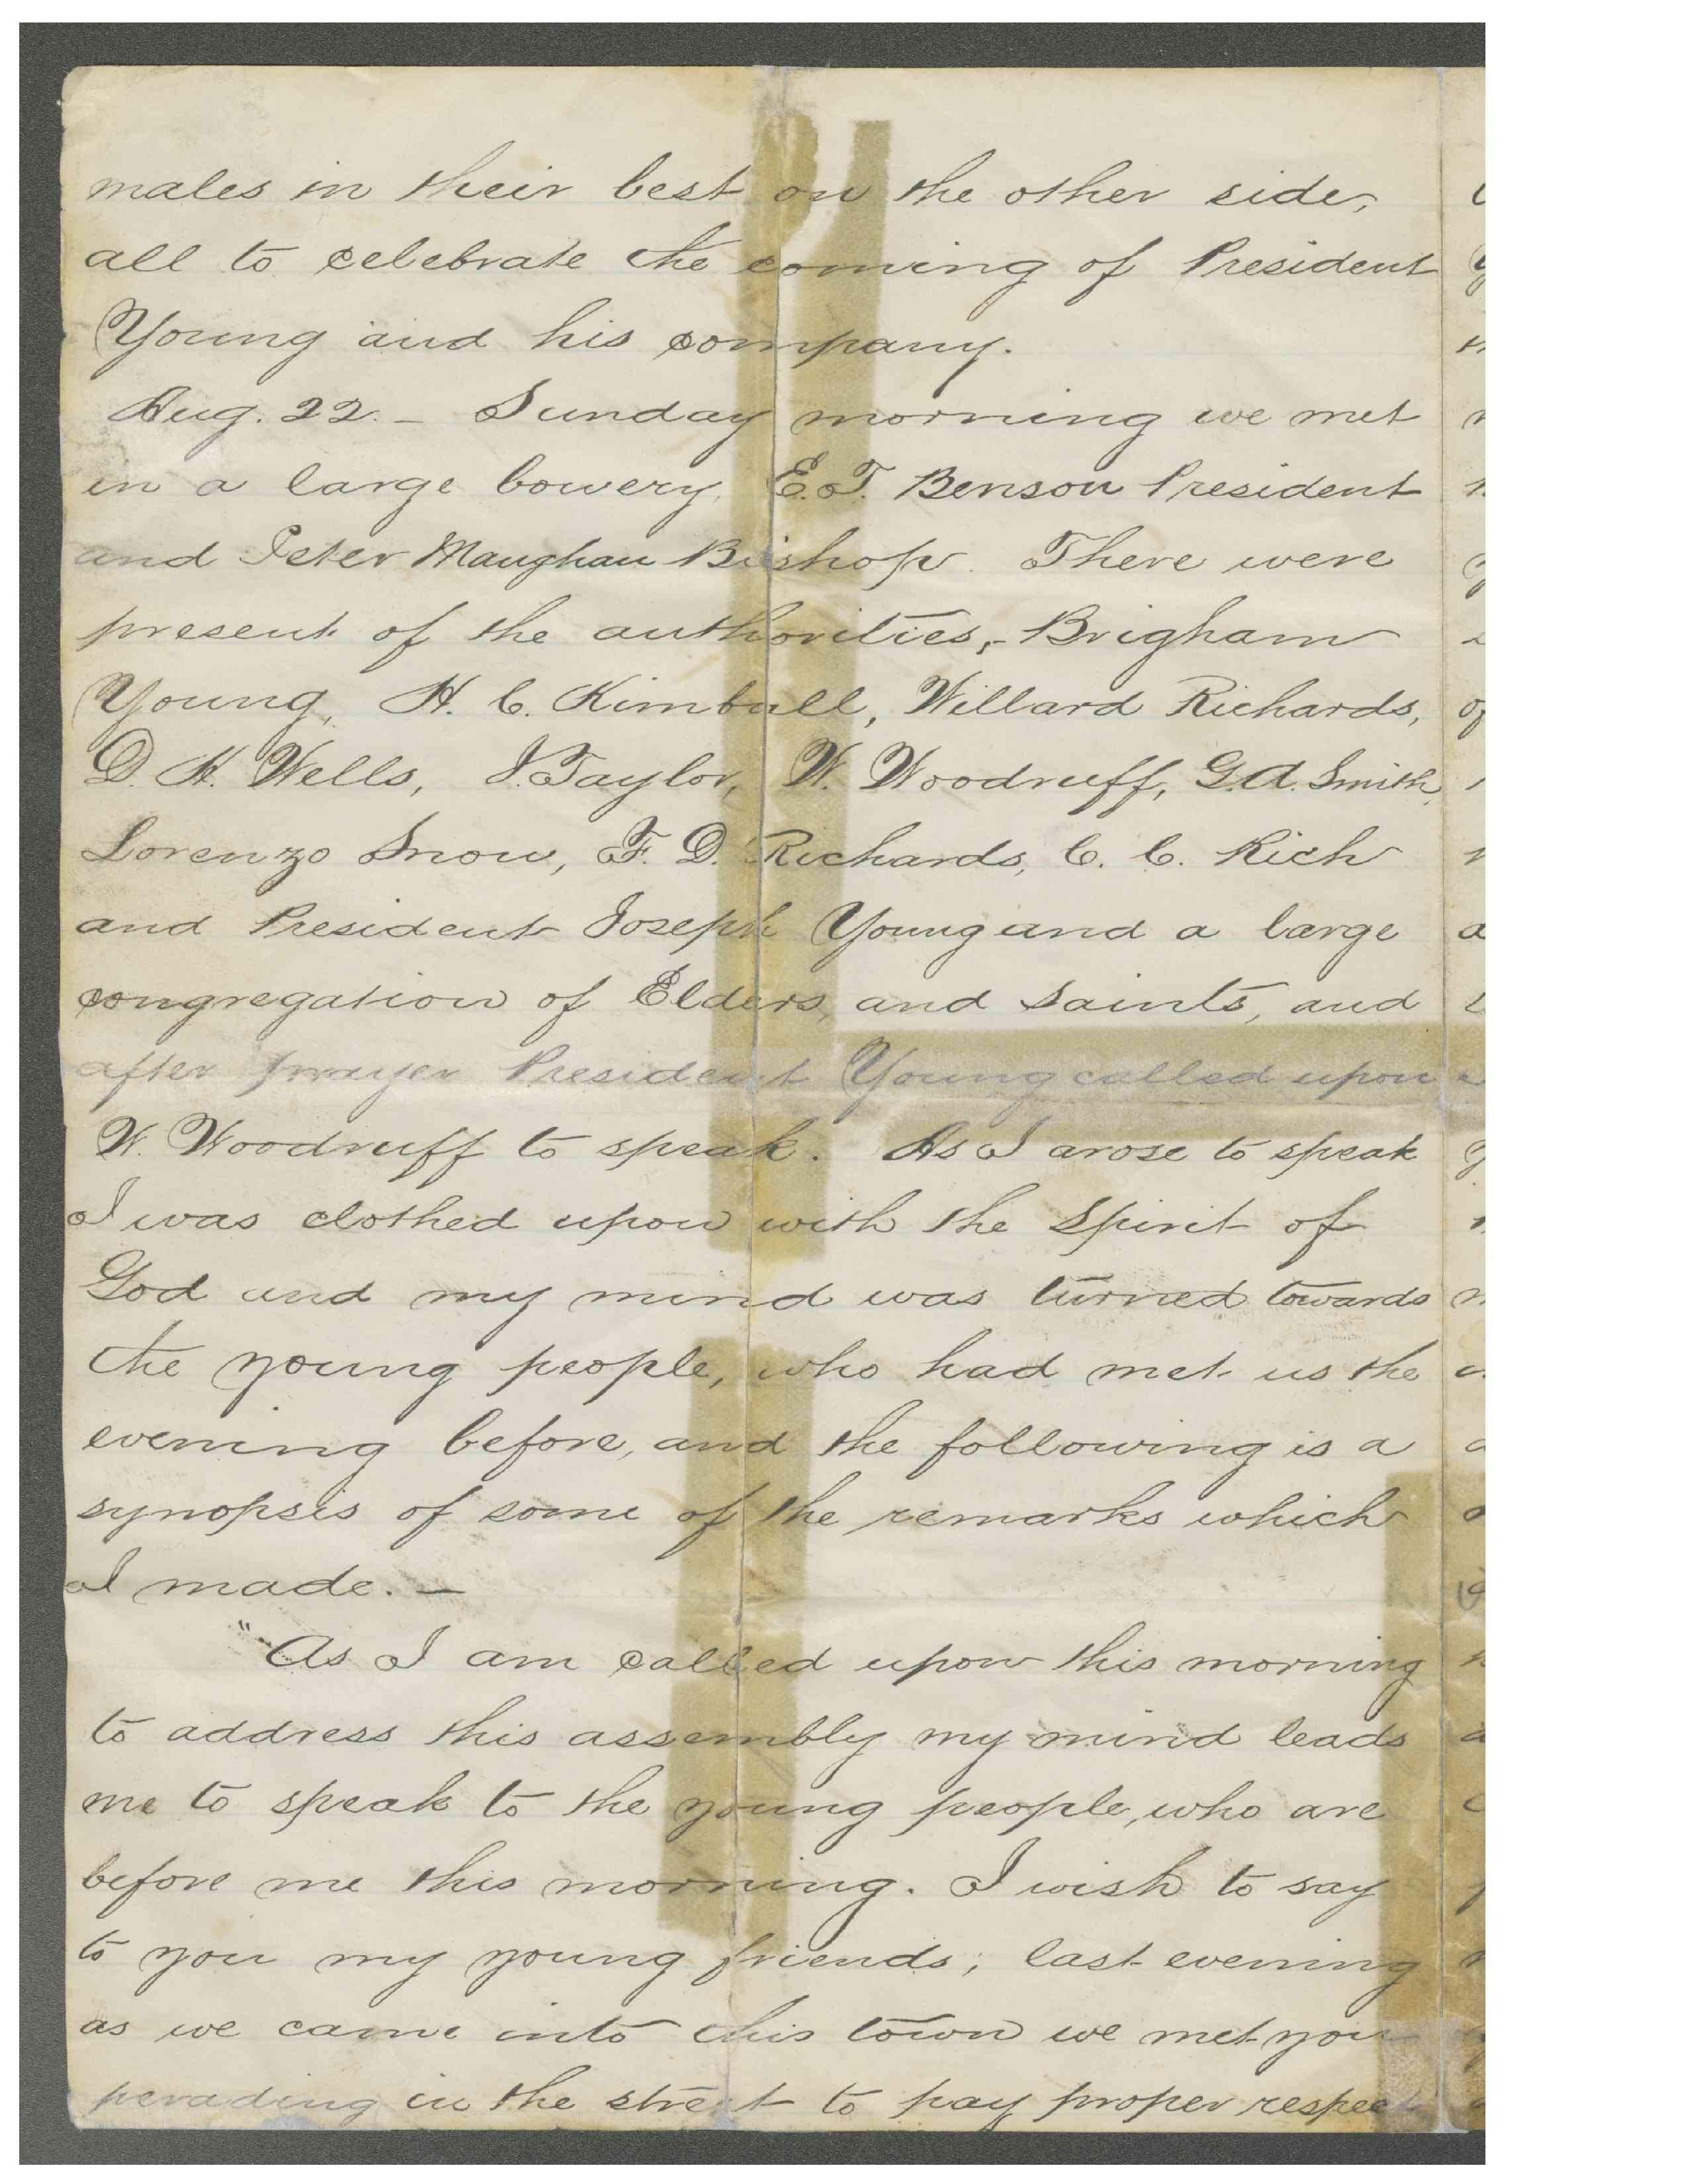 males in their best on the other side,
all to celebrate the coming of President
Young and his company.
Aug. 22. - Sunday morning we met
in a large bowery, E. T. Benson President
and Peter Maughan Bishop. There were
present of the authorities, - Brigham
Young, H. C. Kimball, Willard Richards,
D. H. Wells, J. Taylor, W. Woodruff, G. A. Smith,
Lorenzo Snow, F. D. Richards, C. C. Rich
and President Joseph Young and a large
congregation of Elders, and Saints, and
after prayer President Young called upon
W. Woodruff to speak. As I arose to speak
I was clothed upon with the Spirit of
God and my mind was turned towards
the young people, who had met us the
evening before, and the following is a
synopsis of some of the remarks which
I made. -
"As I am called upon this morning
to address this assembly my mind leads
me to speak to the young people, who are
before me this morning. I wish to say
to you my young friends; last evening
as we came into this town we met you
perading in the street to pay proper respect